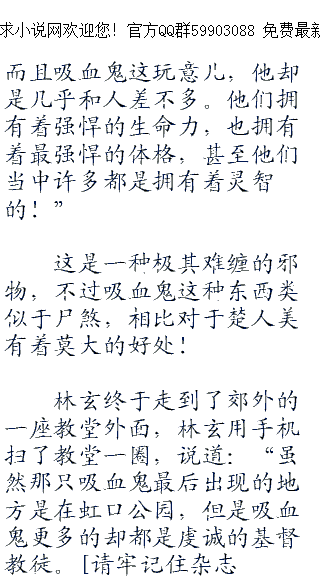 求小说网欢迎您! 官方QQ群59903088 免费最新
而且吸血鬼这玩意儿，他却
是几乎和人差不多。他们拥
有着强悍的生命力，也拥有
着最强悍的体格，甚至他们
当中许多都是拥有着灵智
的！”
这是一种极其难缠的邪
物，不过吸血鬼这种东西类
似于尸煞，相比对于楚人美
有着莫大的好处！
林玄终于走到了郊外的
一座教堂外面，林玄用手机
扫了教堂一圈，说道：“虽
然那只吸血鬼最后出现的地
方是在虹口公园，但是吸血
鬼更多的却都是虔诚的基督
教徒。[请牢记住杂志